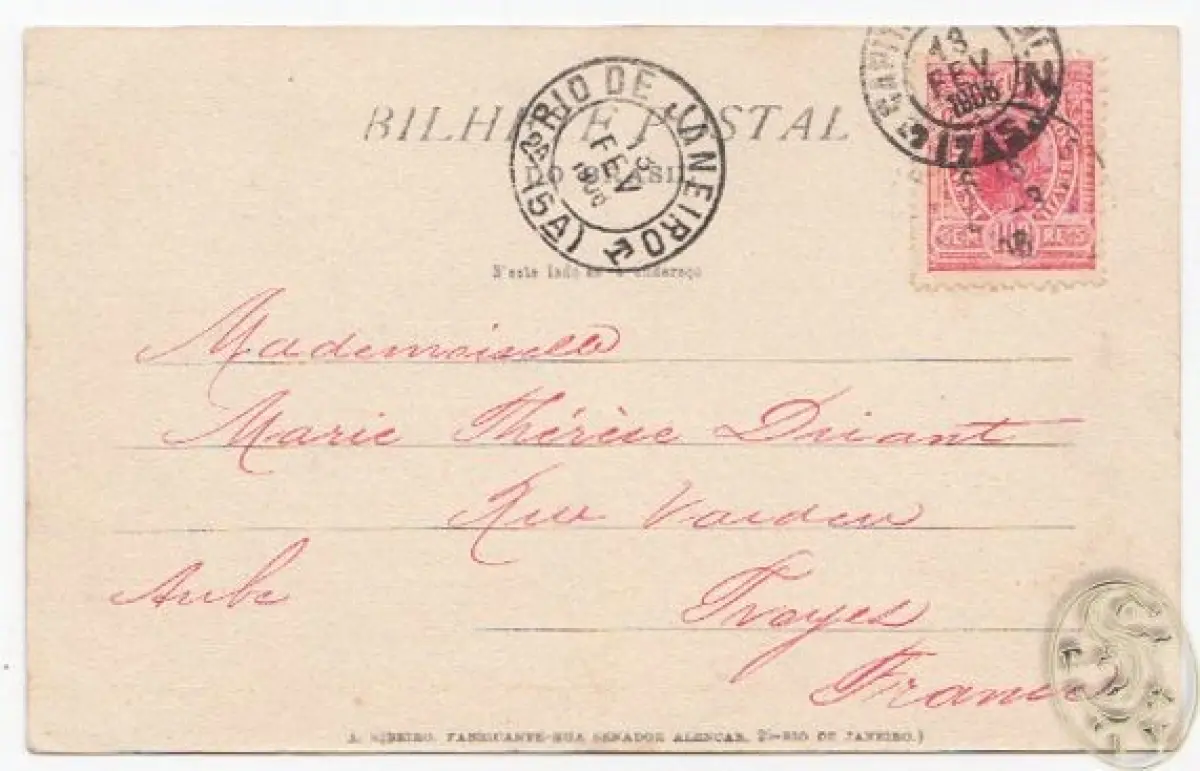 BILHETE POSTAL
DO BRASIL
RIO DE JANEIRO
13
FEV
1906
(5A)
13
FEV
1906
CEM 100 REIS
N'este lado só o endereço
Mademoiselle
Marie Thérèse Driant
Rue
Aube
Troyes
France
A. RIBEIRO, FABRICANTE-RUA SENADOR ALENCAR, RIO DE JANEIRO.)